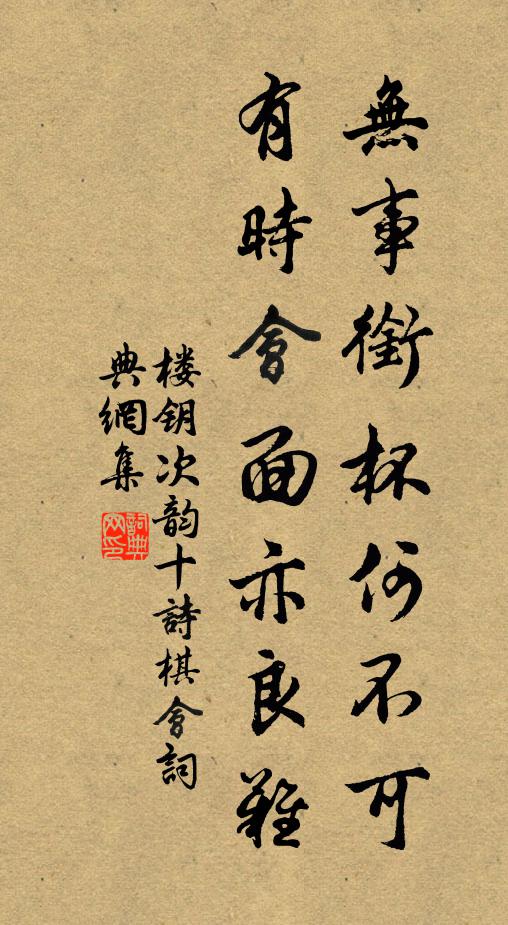 無事銜杯何不可
有時會面亦良難
楼钥次韵十詩棋會詞
典網集
詞典
网印